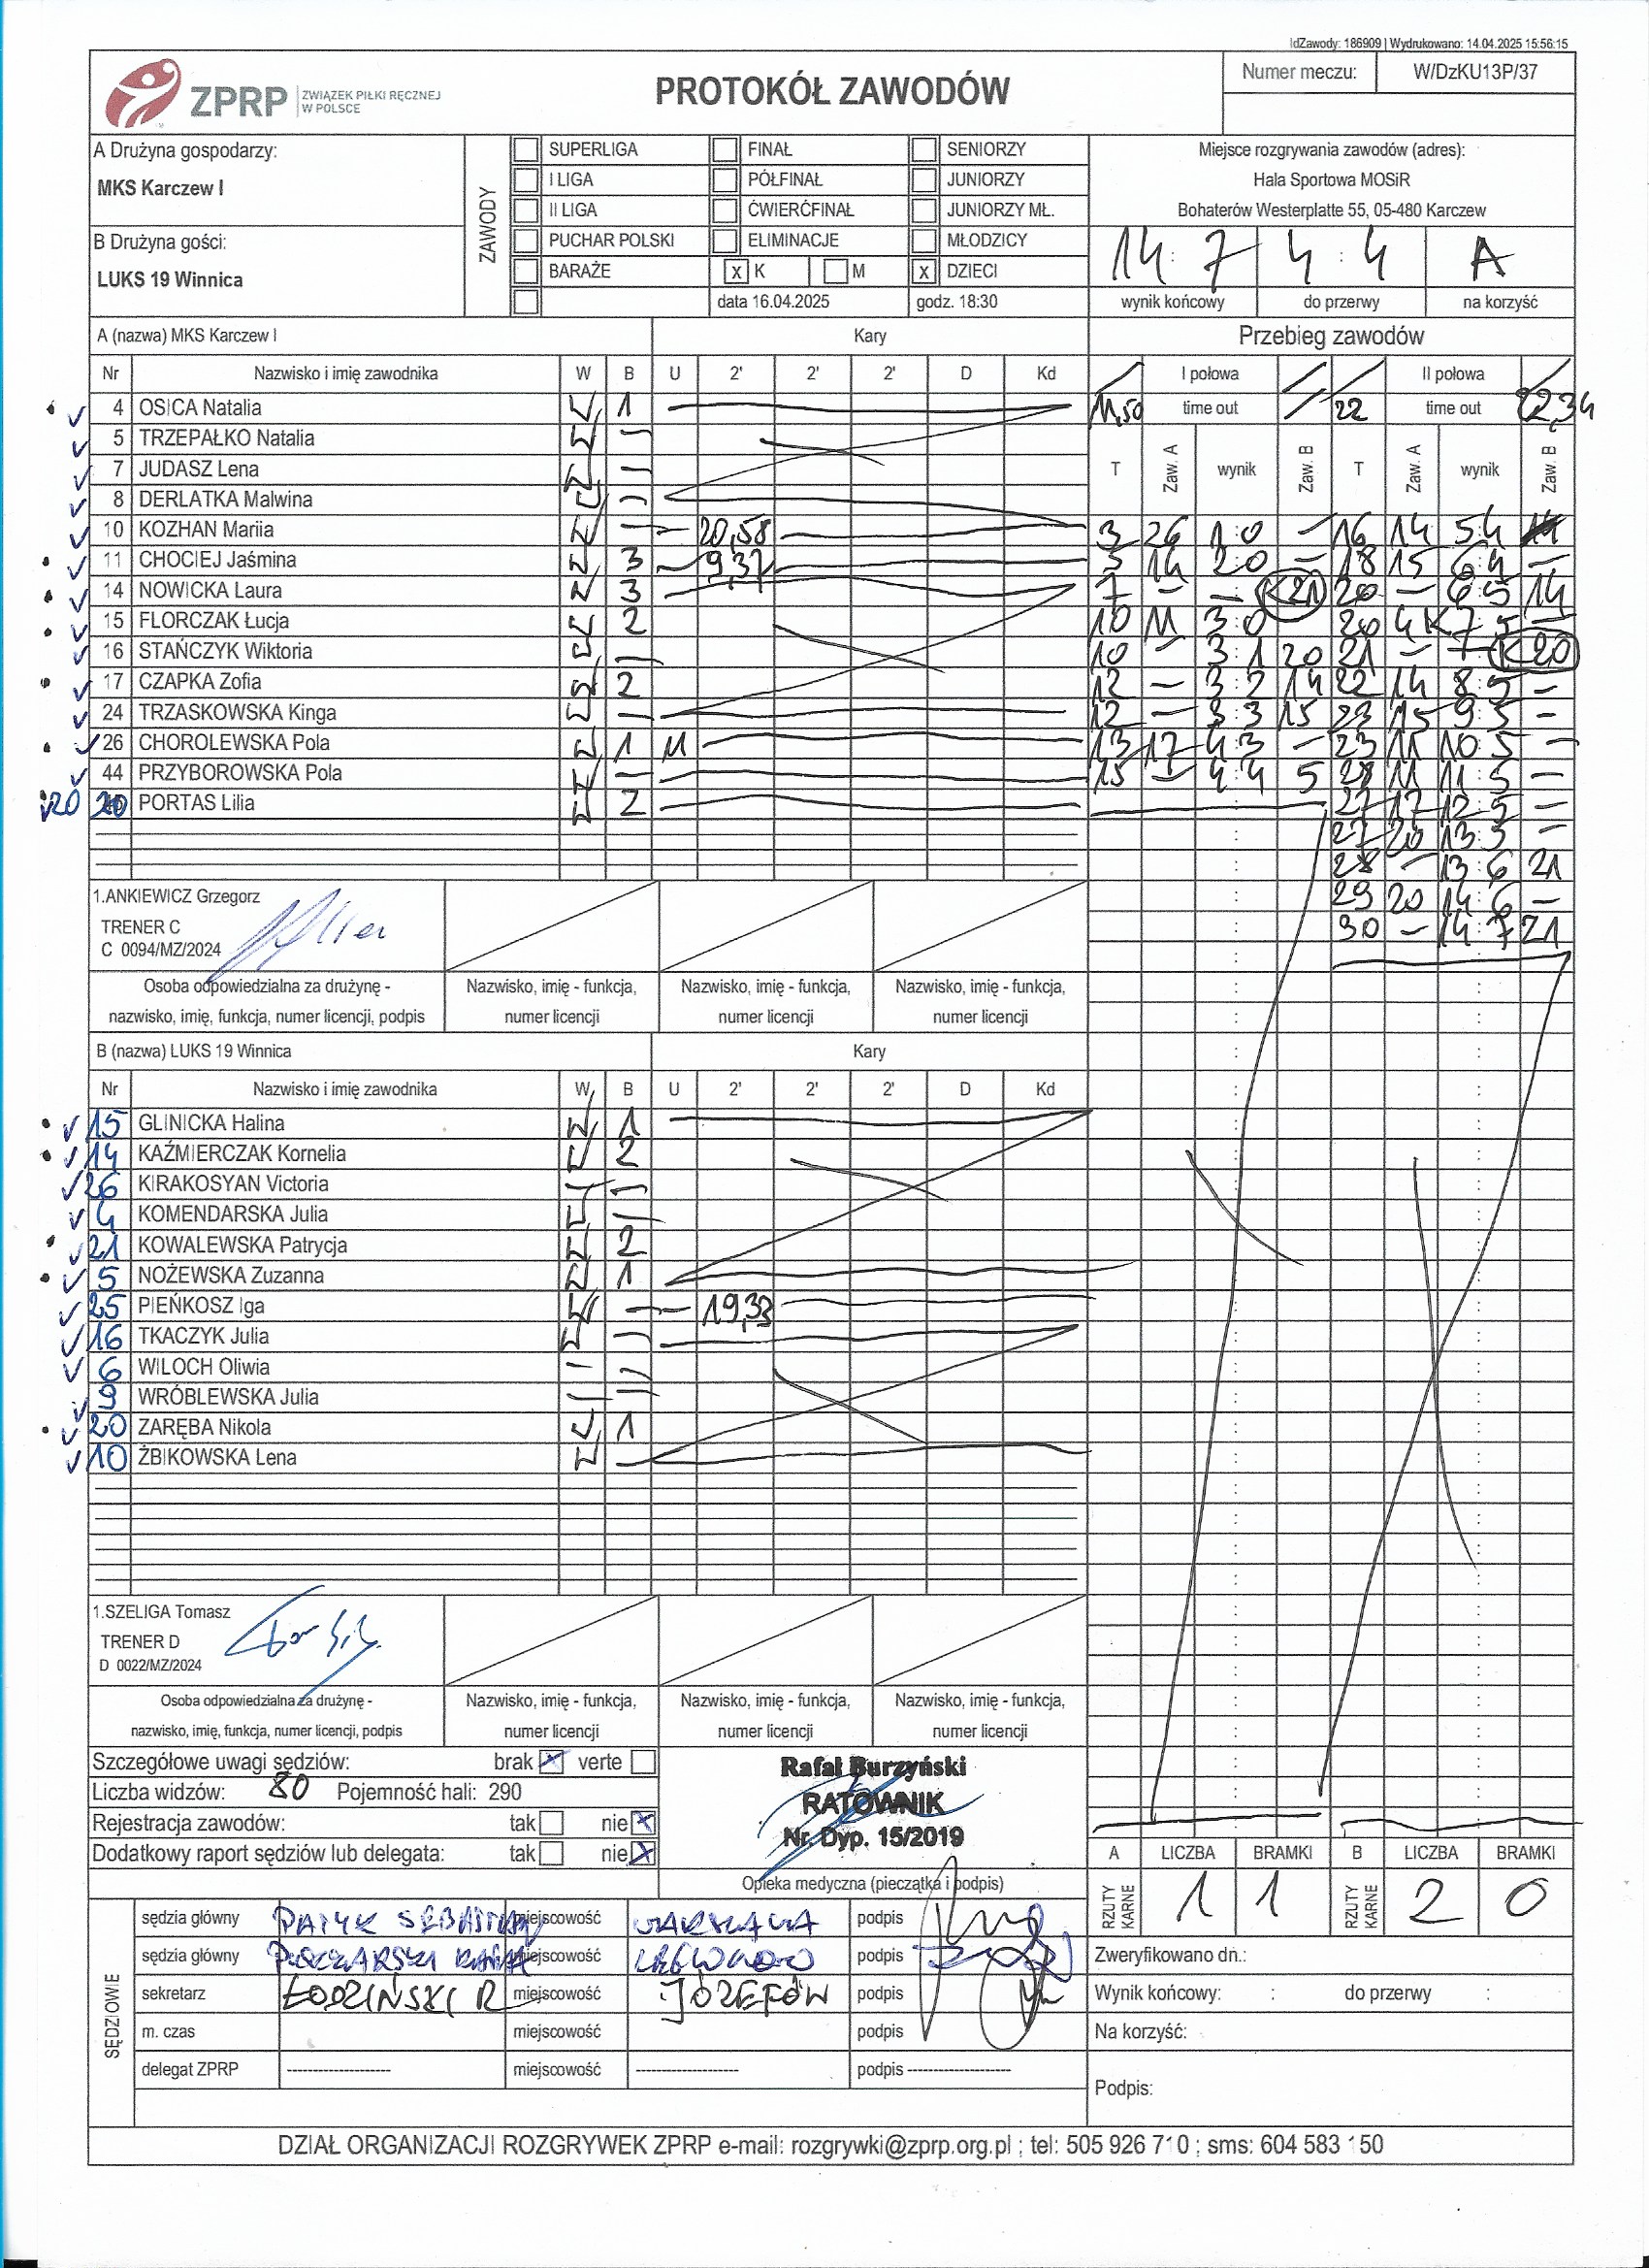 IdZawody: 186909 | Wydrukowano: 14.04.2025 15:56:15
ZPRP ZWIĄZEK PIŁKI RĘCZNEJ W POLSCE
PROTOKÓŁ ZAWODÓW
Numer meczu: W/DzKU13P/37
A Drużyna gospodarzy:
MKS Karczew I
B Drużyna gości:
LUKS 19 Winnica
ZAWODY
SUPERLIGA FINAŁ SENIORZY
I LIGA PÓŁFINAŁ JUNIORZY
II LIGA ĆWIERĆFINAŁ JUNIORZY MŁ.
PUCHAR POLSKI ELIMINACJE MŁODZICY
BARAŻE x K M x DZIECI
data 16.04.2025 godz. 18:30
Miejsce rozgrywania zawodów (adres):
Hala Sportowa MOSiR
Bohaterów Westerplatte 55, 05-480 Karczew
14 : 7 4 : 4 A
wynik końcowy do przerwy na korzyść
A (nazwa) MKS Karczew I Kary
Nr Nazwisko i imię zawodnika W B U 2' 2' 2' D Kd
4 OSICA Natalia 1
5 TRZEPAŁKO Natalia
7 JUDASZ Lena
8 DERLATKA Malwina
10 KOZHAN Mariia 20,58
11 CHOCIEJ Jaśmina 3 9,37
14 NOWICKA Laura 3
15 FLORCZAK Łucja 2
16 STAŃCZYK Wiktoria
17 CZAPKA Zofia 2
24 TRZASKOWSKA Kinga
26 CHOROLEWSKA Pola 1 11
44 PRZYBOROWSKA Pola
20 20 PORTAS Lilia 2
1.ANKIEWICZ Grzegorz
TRENER C
C 0094/MZ/2024
Osoba odpowiedzialna za drużynę - nazwisko, imię, funkcja, numer licencji, podpis
Nazwisko, imię - funkcja, numer licencji
Nazwisko, imię - funkcja, numer licencji
Nazwisko, imię - funkcja, numer licencji
B (nazwa) LUKS 19 Winnica Kary
Nr Nazwisko i imię zawodnika W B U 2' 2' 2' D Kd
15 GLINICKA Halina 1
14 KAŹMIERCZAK Kornelia 2
26 KIRAKOSYAN Victoria
4 KOMENDARSKA Julia
21 KOWALEWSKA Patrycja 2
5 NOŻEWSKA Zuzanna 1
25 PIEŃKOSZ Iga 19,33
16 TKACZYK Julia
6 WILOCH Oliwia
9 WRÓBLEWSKA Julia
20 ZARĘBA Nikola 1
10 ŻBIKOWSKA Lena
1.SZELIGA Tomasz
TRENER D
D 0022/MZ/2024
Osoba odpowiedzialna za drużynę - nazwisko, imię, funkcja, numer licencji, podpis
Nazwisko, imię - funkcja, numer licencji
Nazwisko, imię - funkcja, numer licencji
Nazwisko, imię - funkcja, numer licencji
Przebieg zawodów
I połowa II połowa
11,50 time out 22 time out 22,34
T Zaw. A wynik Zaw. B T Zaw. A wynik Zaw. B
3 26 1:0 – 16 14 5:4
5 14 2:0 – 18 15 6:4 –
7 – – K21 20 – 6:5 14
10 11 3:0 20 4K 7:5 –
10 – 3:1 20 21 – – K20
12 – 3:2 14 22 14 8:5 –
12 – 3:3 15 23 15 9:5 –
13 17 4:3 – 23 11 10:5 –
15 – 4:4 5 28 11 11:5 –
27 17 12:5 –
27 20 13:5 –
28 – 13:6 21
29 20 14:6 –
30 – 14:7 21
Szczegółowe uwagi sędziów: brak x verte
Liczba widzów: 80 Pojemność hali: 290
Rejestracja zawodów: tak nie x
Dodatkowy raport sędziów lub delegata: tak nie x
Rafał Burzyński
RATOWNIK
Nr. Dyp. 15/2019
Opieka medyczna (pieczątka i podpis)
A LICZBA BRAMKI B LICZBA BRAMKI
RZUTY KARNE 1 1 RZUTY KARNE 2 0
SĘDZIOWIE
sędzia główny PATYK SEBASTIAN miejscowość WARSZAWA podpis
sędzia główny miejscowość LEGIONOWO podpis
sekretarz ŁODZIŃSKI R miejscowość JÓZEFÓW podpis
m. czas miejscowość podpis
delegat ZPRP -------------------- miejscowość -------------------- podpis --------------------
Zweryfikowano dń.:
Wynik końcowy: : do przerwy :
Na korzyść:
Podpis:
DZIAŁ ORGANIZACJI ROZGRYWEK ZPRP e-mail: rozgrywki@zprp.org.pl ; tel: 505 926 710 ; sms: 604 583 150